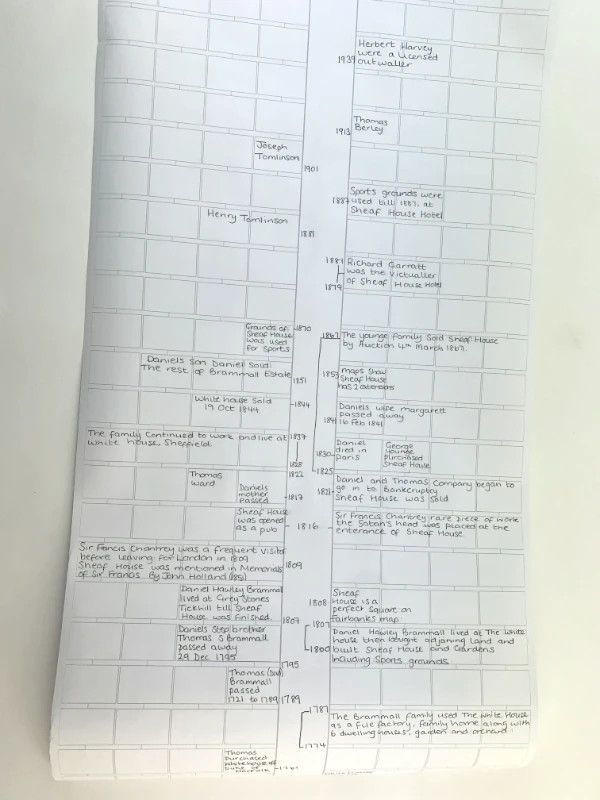 Herbert Harvey
were a Licensed
1939 outwaller
Thomas
1913 Berley
Joseph
Tomlinson
1901
Sports grounds were
1887 used till 1887. at
Sheaf House Hotel
Henry Tomlinson
1881
1881 Richard Garratt
was the Victualler
1879 of Sheaf House Hotel
Grounds of 1870
Sheaf House
was used
for sports
1867 The younge family Sold Sheaf House
by Auction 4th March 1867.
Daniels Son Daniel Sould
The rest of Brammall Estate
1851
1853 maps Show
Sheaf House
has 2
White house Sold 1844
19 Oct 1844
Daniels wife margarett
1841 passed away
16 Feb 1841
The family Continued to work and live at 1837
White house, Sheffield.
1828
Daniel
died in
1830 Paris
George
younge
purchased
Sheaf House
1825
Thomas 1822
Ward
Daniels
mother
passed 1817
Daniel and Thomas Company began to
1821 go in to Bankcruptcy
Sheaf House was Sold
Sheaf House
was opened
as a pub 1816
Sir Francis Chantrey rare piece of work
the Satan's head was placed at the
enterance of Sheaf House
Sir Francis Chantrey was a frequent visits
before leaving for London in 1809
Sheaf House was mentioned in Memorials 1809
of Sir Francis By John Holland (1851)
Daniel Hawley Brammall
lived at Grey Stones
Tickhill till Sheaf
House was finished. 1807
Sheaf
1808 House is a
perfect Square on
fairbanks map
1807
Daniels Stepbrother
Thomas S Brammall
passed away
29 Dec 1795
1795
Daniel Hawley Brammall lived at The White
house then bought adjoning Land and
1800 built Sheaf House and Gardens
Including Sports grounds
Thomas (Dad)
Brammall
passed
1721 to 1789 1789
1787
The Brammall family used The White House
as a file factory, family home along with
6 dwelling houses, garden and orchard.
1774
Thomas
Purchased